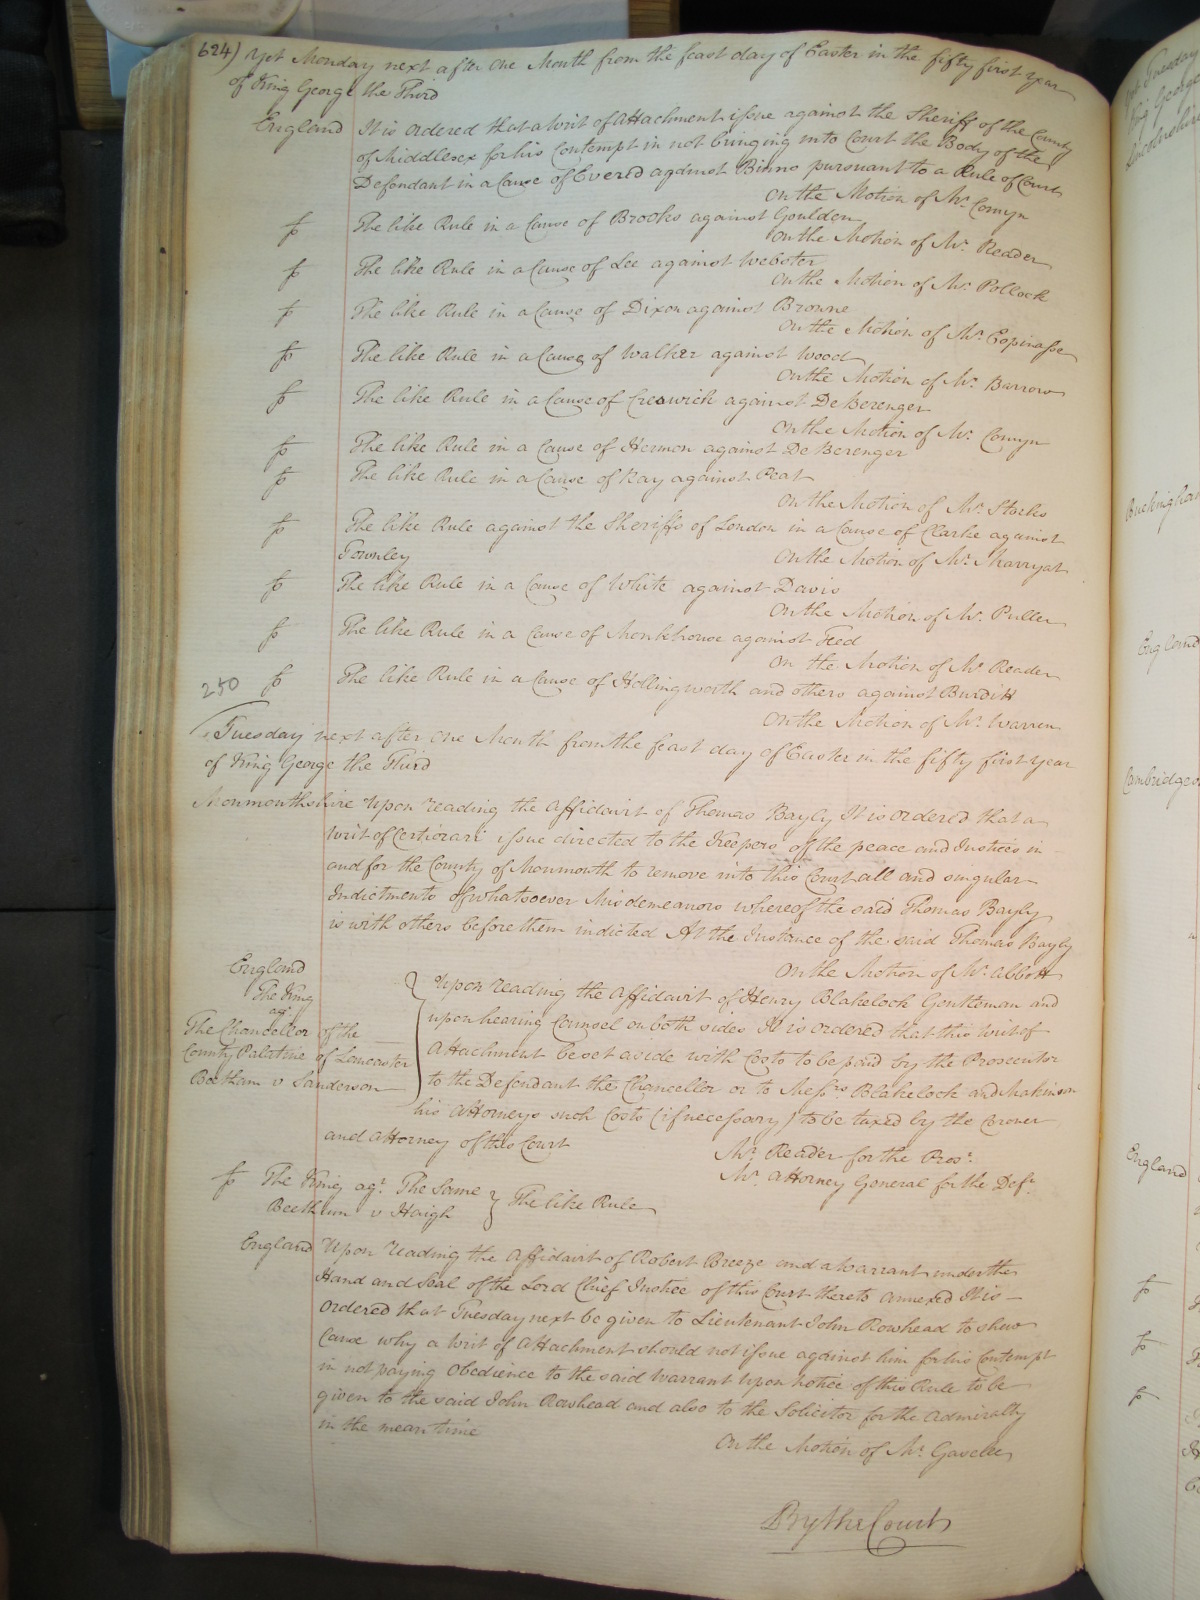 624) Yet Monday next after One Month from the feast day of Easter in the fifty first year
of King George the Third
England It is Ordered that a Writ of Attachment issue against the Sheriff of the County
of Middlesex for his Contempt in not bringing into Court the Body of the
Defendant in a Cause of Evered against Binns pursuant to a Rule of Court
On the Motion of Mr. Comyn
The like Rule in a Cause of Brooks against Goulden
On the Motion of Mr. Reader
The like Rule in a Cause of Lee against Webster
On the Motion of Mr. Pollock
The like Rule in a Cause of Dixon against Browne
On the Motion of Mr. Espinasse
The like Rule in a Cause of Walker against Wood
On the Motion of Mr. Barrow
The like Rule in a Cause of Creswick against De Berenger
On the Motion of Mr. Comyn
The like Rule in a Cause of Hermon against De Berenger
The like Rule in a Cause of Kay against Peat
On the Motion of Mr. Stocks
The like Rule against the Sheriffs of London in a Cause of Clarke against
Townley On the Motion of Mr. Marryat
The like Rule in a Cause of White against Davis
On the Motion of Mr. Puller
The like Rule in a Cause of Monkhouse against
On the Motion of Mr Reader
250 The like Rule in a Cause of Hollingworth and others against Burditt
On the Motion of Mr. Warren
Tuesday next after One Month from the feast day of Easter in the fifty first year
of King George the Third
Monmouthshire Upon reading the Affidavit of Thomas Bayly It is Ordered that a
Writ of Certiorari issue directed to the Keepers of the peace and Justices in
and for the County of Monmouth to remove into this Court all and singular
Indictments of whatsoever Misdemeanors whereof the said Thomas Bayly
is with others before them indicted At the Instance of the said Thomas Bayly
On the Motion of Mr. Abbott
England
The King
agt.
The Chancellor of the
County Palatine of Lancaster
Beetham v Sanderson
Upon reading the Affidavit of Henry Blakelock Gentleman and
upon hearing Counsel on both sides It is Ordered that this Writ of
Attachment be set aside with Costs to be paid by the Prosecutor
to the Defendant the Chancellor or to Messrs. Blakelock and Makinson
his Attorneys such Costs (if necessary) to be taxed by the Coroner
and Attorney of this Court
Mr. Reader for the Pros.
Mr. Attorney General for the Deft.
The King agt. The Same } The like Rule
Beetham v Haigh
England Upon reading the Affidavit of Robert Breeze and a Warrant under the
Hand and Seal of the Lord Chief Justice of this Court thereto annexed It is
Ordered that Tuesday next be given to Lieutenant John Rowhead to shew
Cause why a Writ of Attachment should not issue against him for his Contempt
in not paying Obedience to the said Warrant Upon notice of this Rule to be
given to the said John Rowhead and also to the Solicitor for the Admiralty
in the mean time
On the Motion of Mr. Gaselee
By the Court
Buckingham
England
England